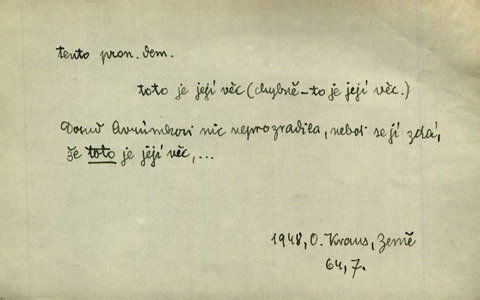 tento pron. dem.
toto je její věc (chybně – to je její věc.)
Dosud Avrúmkovi nic neprozradila, neboť se jí zdá,
že toto je její věc, ...
1948, O. Kraus, Země
64, 7.